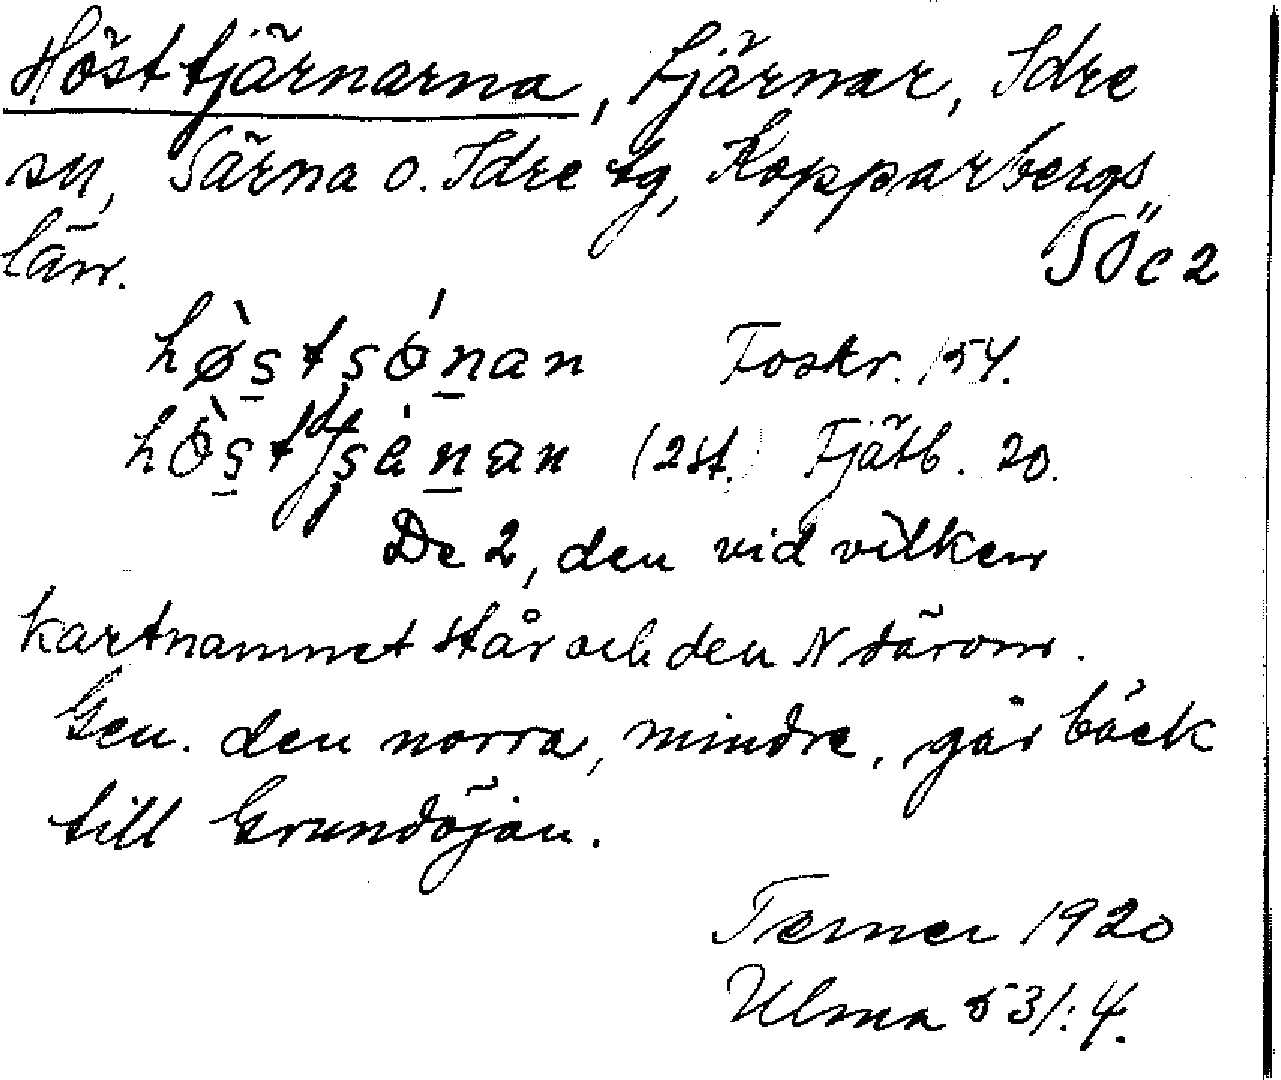 Hösttjärnarna, tjärnar, Idre
sn, Särna o. Idre tg, Kopparbergs
län.
SÖc2
Foskr. 154.
(2st.) Fjätb. 20.
De 2, den vid vilken
kartnamnet står och den N därom.
Gen. den norra, mindre, går bäck
till Grundöjan.
Terner 1920
Ulma 531:4.